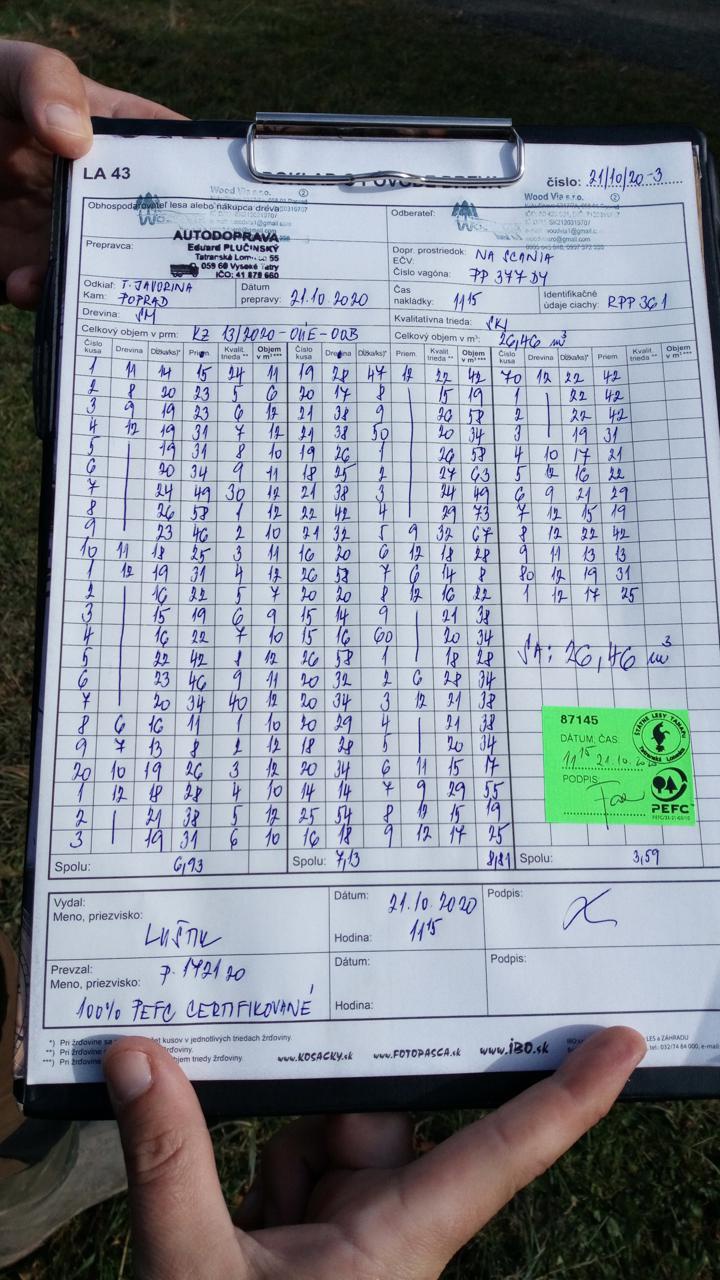 LA 43
číslo: 21/10/20-3
Wood Via s.r.o. ②
Wood Via s.r.o. ②
Obhospodarovateľ lesa alebo nákupca dreva:
Odberateľ:
AUTODOPRAVA
Eduard PLUČINSKÝ
Tatranská 55
059 60 Vysoké Tatry
IČO: 41 878 660
Prepravca:
Dopr. prostriedok: NA SCANIA
EČV:
Číslo vagóna: PP 377 DY
Odkiaľ: T. JAVORINA
Kam: POPRAD
Dátum prepravy: 21.10.2020
Čas nakládky: 11 15
Identifikačné údaje ciachy: RPP 361
Drevina: SM
Kvalitatívna trieda:
Celkový objem v prm: KZ 13/2020-
Celkový objem v m³: 26,46 m³
Číslo kusa Drevina Dĺžka(ks)* Priem. Kvalit. trieda ** Objem v m³ *** Číslo kusa Drevina Dĺžka(ks)* Priem. Kvalit. trieda ** Objem v m³ *** Číslo kusa Drevina Dĺžka(ks)* Priem. Kvalit. trieda ** Objem v m³ ***
1 11 14 15 24 11 19 28 47 12 22 42 70 12 22 42
2 8 20 23 5 6 20 17 8 15 19 1 22 42
3 9 19 23 6 12 21 38 9 26 58 2 22 42
4 12 19 31 7 12 21 38 50 20 34 3 19 31
5 19 31 8 10 19 26 1 26 58 4 10 17 21
6 20 34 9 11 18 25 2 27 63 5 12 16 22
7 24 49 30 12 21 38 3 24 49 6 9 21 29
8 26 58 1 12 22 42 4 29 73 7 12 15 19
9 23 46 2 10 21 32 5 9 32 67 8 12 22 42
10 11 18 25 3 11 16 20 6 12 18 28 9 11 13 13
1 12 19 31 4 12 26 58 7 6 14 8 80 12 19 31
2 16 22 5 7 20 20 8 12 16 22 1 12 17 25
3 15 19 6 9 15 14 9 21 38
4 16 22 7 10 15 16 60 20 34
5 22 42 8 12 26 58 1 18 28
6 23 46 9 11 20 32 2 6 28 34
7 20 34 40 12 20 34 3 12 21 38
8 6 16 11 1 10 20 29 4 21 38
9 7 13 8 2 12 18 28 5 20 34
20 10 19 26 3 12 20 34 6 11 15 17
1 12 18 28 4 10 14 14 7 9 29 55
2 21 38 5 12 25 54 8 12 15 19
3 19 31 6 10 16 18 9 12 17 25
SA: 26,46 m³
87145
DÁTUM, ČAS:
11 15 21.10.
PODPIS:
ŠTÁTNE LESY TANAPU
Tatranská Lomnica
PEFC
Spolu: 6,93 Spolu: 7,13 8,81 Spolu: 3,59
Vydal:
Meno, priezvisko:
Dátum: 21.10.2020
Hodina: 11 15
Podpis:
Prevzal:
Meno, priezvisko:
Dátum:
Hodina:
Podpis:
100% PEFC CERTIFIKOVANÉ
*) Pri žrďovine kusov v jednotlivých triedach žrďoviny.
**) Pri žrďovine
***) Pri objem triedy žrďoviny.
www.KOSACKY.sk www.FOTOPASCA.sk www.iBO.sk
LES a ZÁHRADU